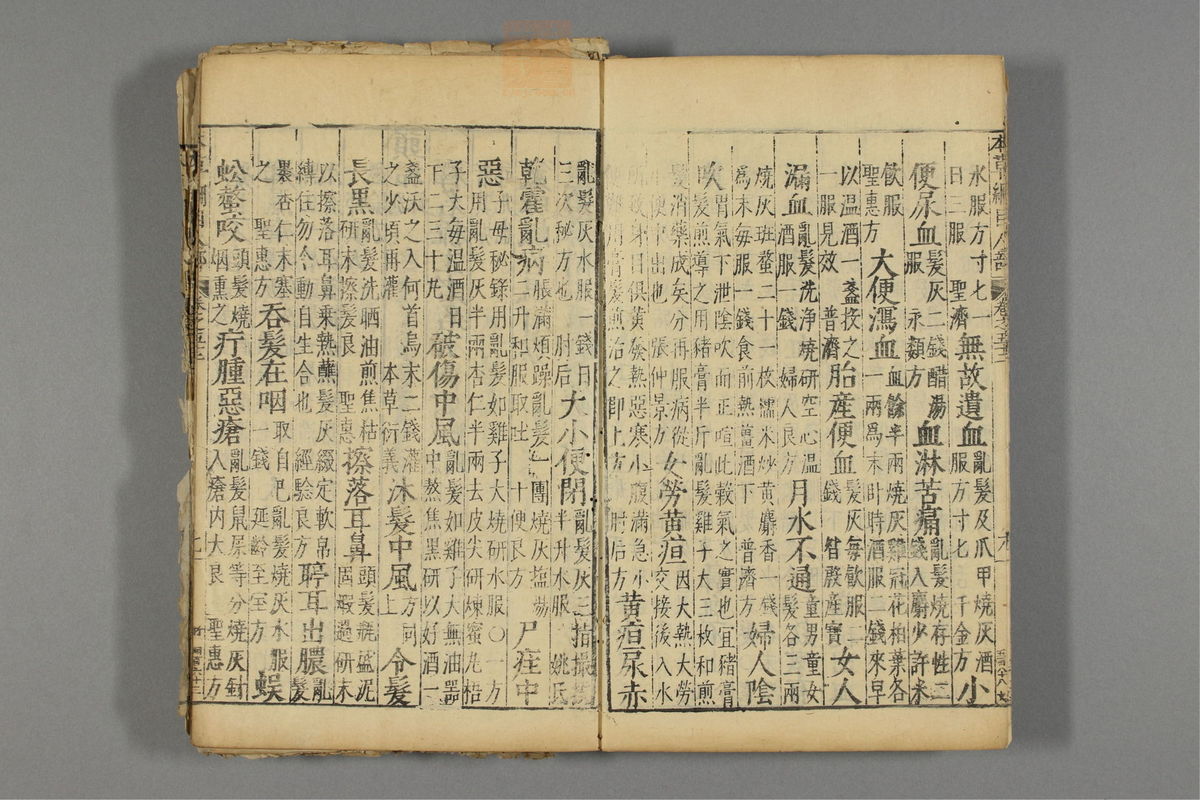 本草綱目人部 卷之五十二 九
水服方寸匕一日三服 聖濟 無故遺血 亂髮及爪甲燒灰酒服方寸匕 千金方 小
便尿血 髮灰二錢醋湯服 永類方 血淋苦痛 亂髮燒存性二錢入麝少許米
飲服 聖惠方 大便瀉血 血餘半兩燒灰雞冠花柏葉各一兩爲末卧時酒服二錢來早
以温酒一盞投之一服見效 普濟 胎産便血 髮灰每飲服二錢 昝殷産寶 女人
漏血 亂髮洗淨燒研空心温酒服一錢 婦人良方 月水不通 童男童女髮各三兩
燒灰斑蝥二十一枚糯米炒黄麝香一錢爲末每服一錢食前熱薑酒下 普濟方 婦人陰
吹 胃氣下泄陰吹而正喧此穀氣之實也宜猪膏髮煎導之用猪膏半斤亂髮雞子大三枚和煎
髮消藥成矣分再服病從小便中出也 張仲景方 女勞黄疸 因大熱大勞交接後入水
所致身目俱黄發熱惡寒小腹滿急小便難用膏髮煎治之即上方 肘后方 黄疸尿赤
亂髮灰水服一錢日三次秘方也 肘后 大小便閉 亂髮灰三指撮投半升水服 姚氏
乾霍亂病 脹滿煩躁亂髮一團燒灰鹽湯二升和服取吐 十便良方 尸疰中
惡 子母秘録用亂髮如雞子大燒研水服〇一方用亂髮灰半兩杏仁半兩去皮尖研煉蜜丸梧
子大每温酒日下二三十丸 破傷中風 亂髮如雞子大無油器中熬焦黑研以好酒一
盞沃之入何首烏末二錢灌之少頃再灌 本草衍義 沐髮中風 方同上 令髮
長黑 亂髮洗晒油煎焦枯研末擦髮良 聖惠 擦落耳鼻 頭髮瓶盛泥固煅過研末
以擦落耳鼻乗熱蘸髮灰綴定軟帛縛住勿令動自生合也 經驗良方 聤耳出膿 亂髮
裹杏仁末塞之 聖惠方 吞髮在咽 取自己亂髮燒灰水服一錢 延齡至宝方 蜈
蚣螫咬 頭髮燒烟熏之 疔腫惡瘡 亂髮鼠屎等分燒灰針入瘡内大良 聖惠方